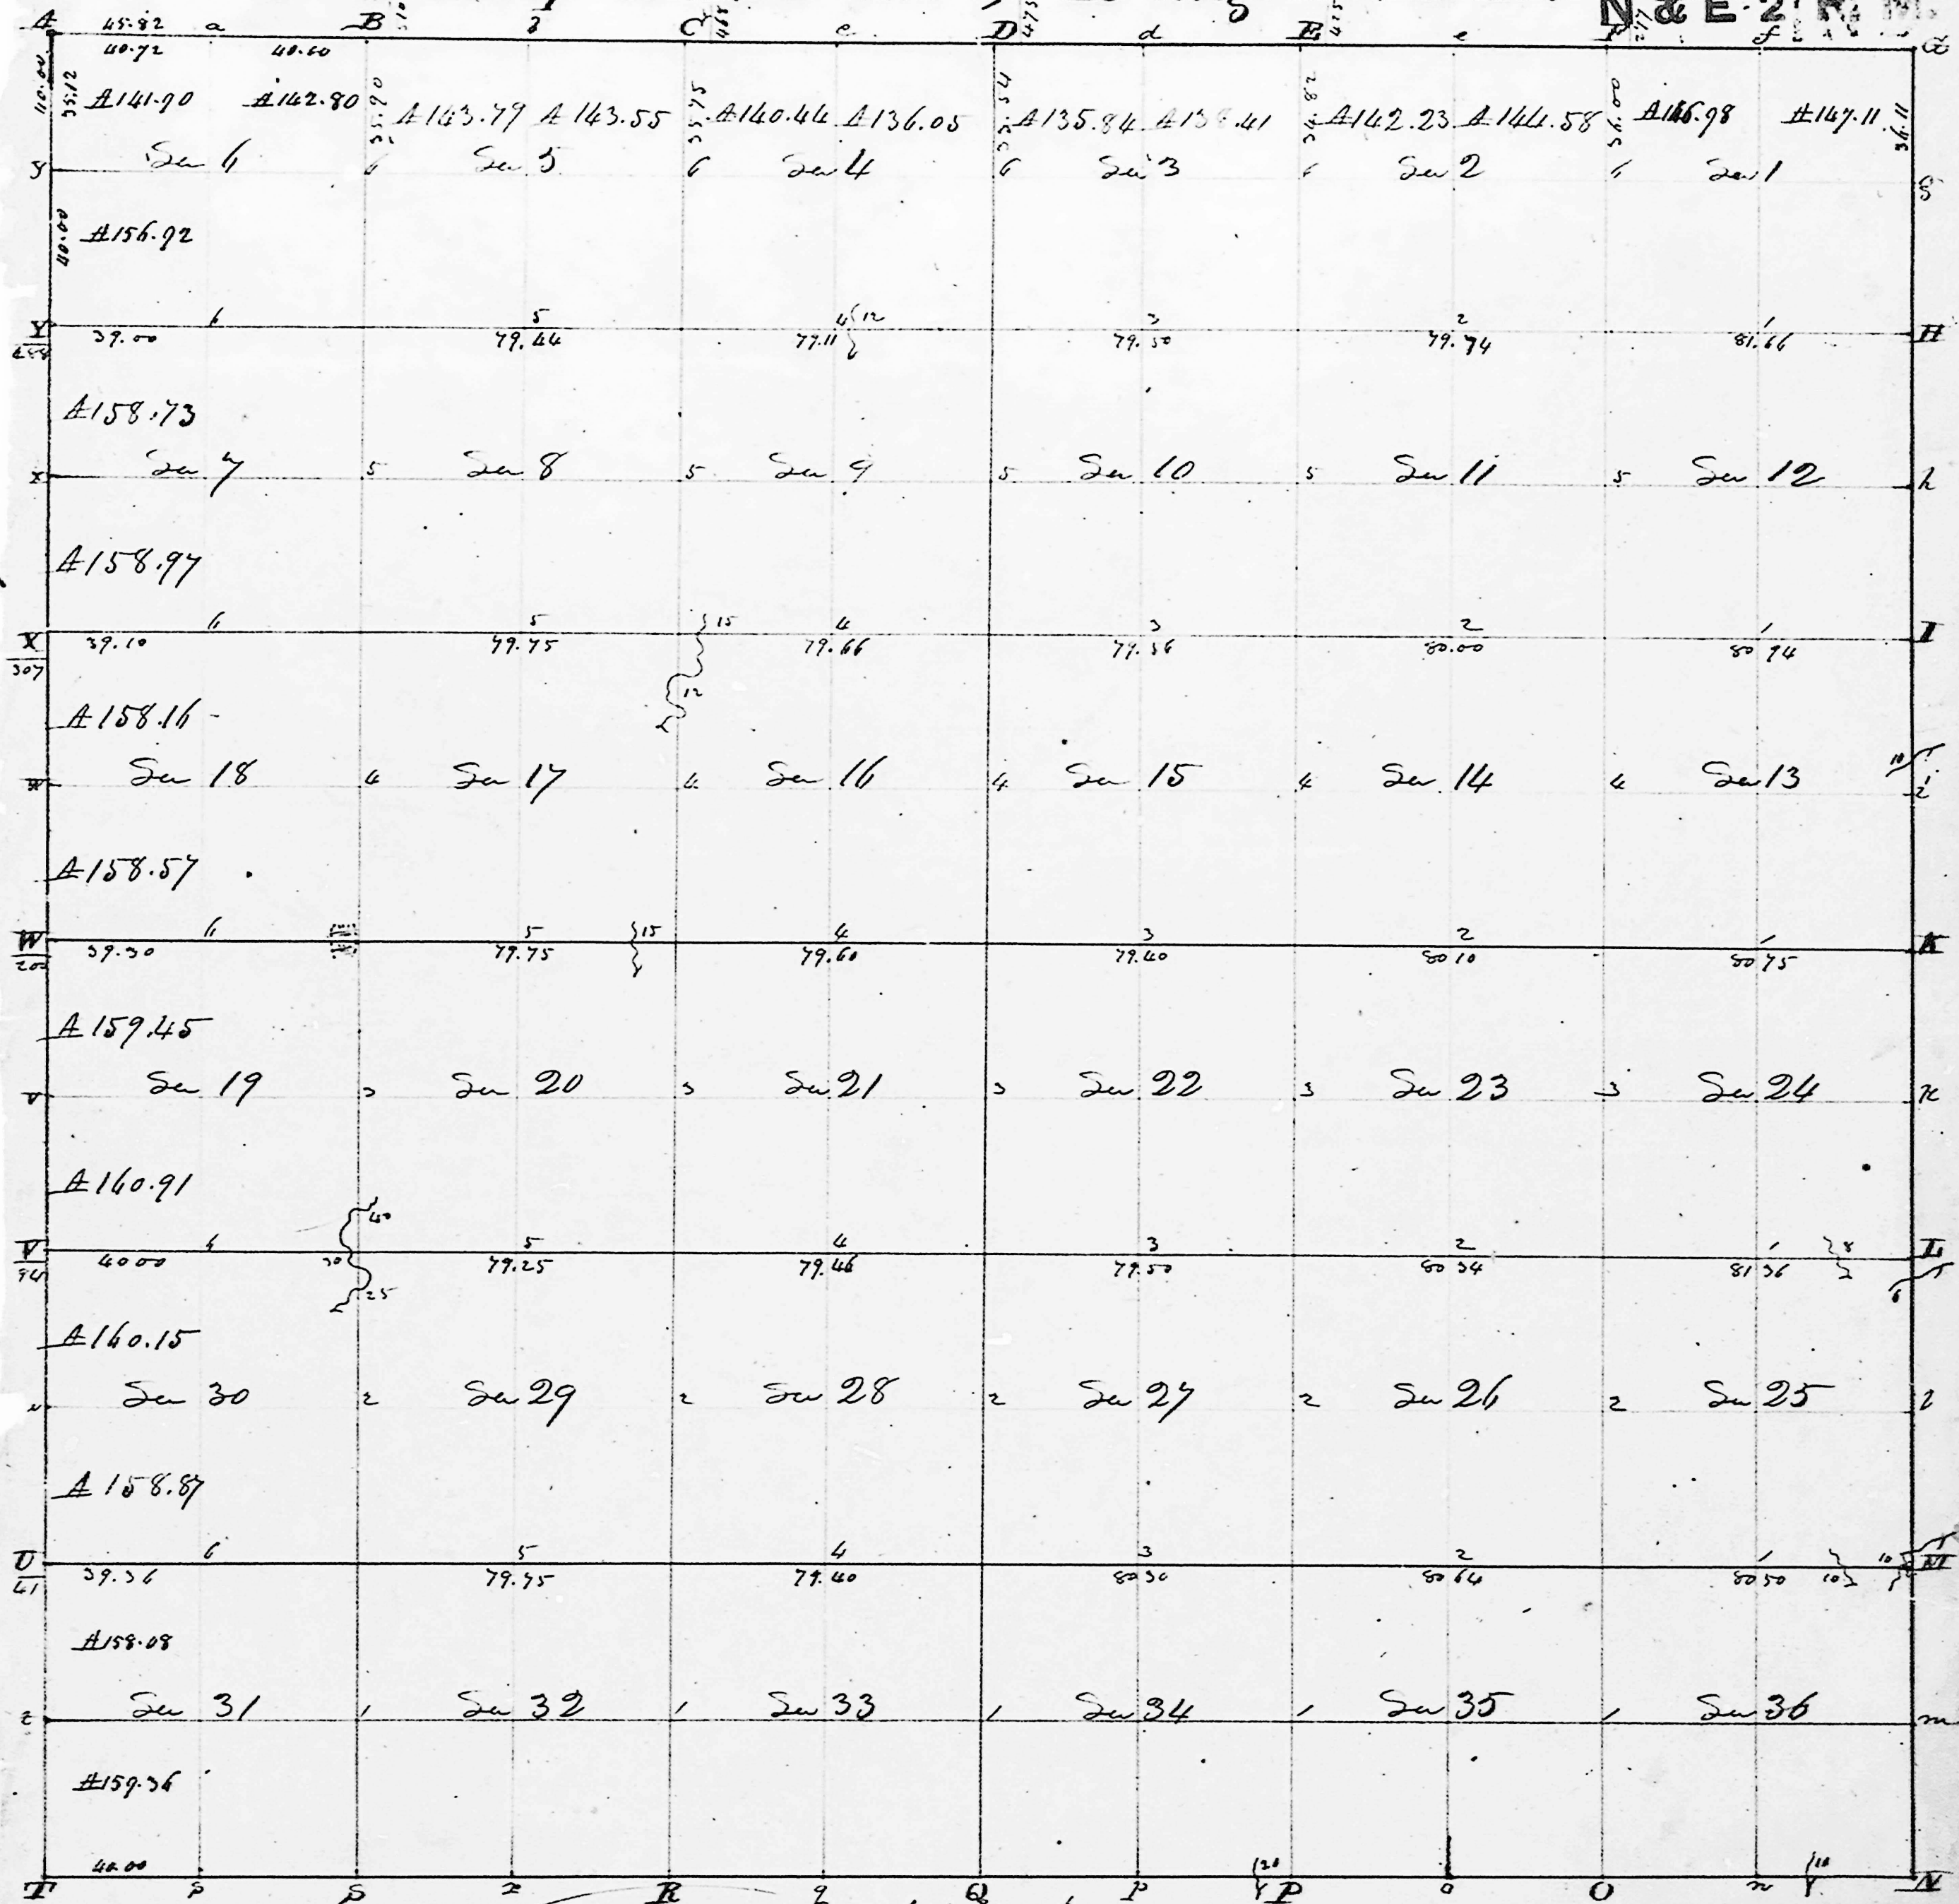 N & E. 2. R. M.
A 45.82 a B b C c D d E e f G
40.72 40.60
110.00 35.12 35.90 35.75 34.82 36.00 36.11
A141.90 A142.80 A143.79 A143.55 A140.44 A136.05 A135.84 A142.23 A144.58 A146.98 A147.11
y Sec 6 6 Sec 5 6 Sec 4 6 Sec 3 6 Sec 2 6 Sec 1 g
40.00 A156.92
Y 6 5 4 12 3 2 1 H
39.00 79.44 77.11 79.50 79.74 81.66
A158.73
x Sec 7 5 Sec 8 5 Sec 9 5 Sec 10 5 Sec 11 5 Sec 12 h
A158.97
X 6 5 15 4 3 2 1 I
307 39.10 79.75 79.66 79.56 80.00 80 94
12
A158.16
w Sec 18 4 Sec 17 4 Sec 16 4 Sec 15 4 Sec 14 4 Sec 13 10 i
A158.57
W 6 5 15 4 3 2 1 K
39.30 79.75 79.60 79.40 80 10 80 75
A159.45
v Sec 19 3 Sec 20 3 Sec 21 3 Sec 22 3 Sec 23 3 Sec 24 k
A160.91
40
V 6 5 4 3 2 1 8 L
94 40 00 30 79.25 79.46 79.50 80 34 81 36
25 6
A160.15
u Sec 30 2 Sec 29 2 Sec 28 2 Sec 27 2 Sec 26 2 Sec 25 l
A158.87
U 6 5 4 3 2 1 10 M
41 39.36 79.75 79.40 80 30 80 64 80 50 10
A158.08
t Sec 31 1 Sec 32 1 Sec 33 1 Sec 34 1 Sec 35 1 Sec 36 m
A159.36
40.00 20 10
T s S r R q Q p P o O n N